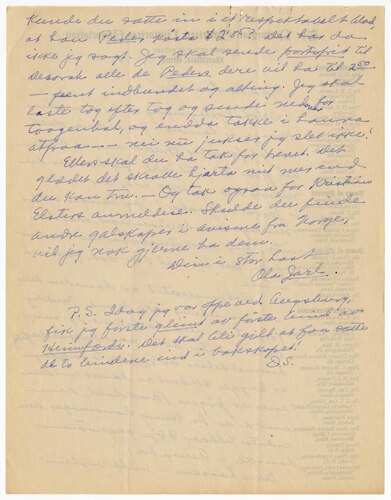 Kunde du sætte in i et respektabelt blad
at hans Peder koste $2.50? det har da
ikke jeg sagt. Jeg skal sende portofrit til
desom alle de Peders dere vil ha til 2.00
— pent indbundet og alting. Jeg skal
laste tog efter tog og sende ned for
toogenhal, og endda takke i
— nei nu jukser jeg slet ikke!
Ellers skal du ha tak for brevet. det
glædet det stråde hjærta mit mer end
du kan tru. — Og tak ogsaa for Kristian
Elsters anmeldelse. Skulde du finde
andre galskaper i aviserne fra Norge,
vil jeg nok gjerne ha dem.
Din i stor hast
Ola Jarl.
P.S. Idag jeg var oppe ved Augsburg,
fik jeg første glimt av første bind av
Heimferdi. Det skal bli gilt at faa sætte
de to bindene ind i bokskapet!
D.S.